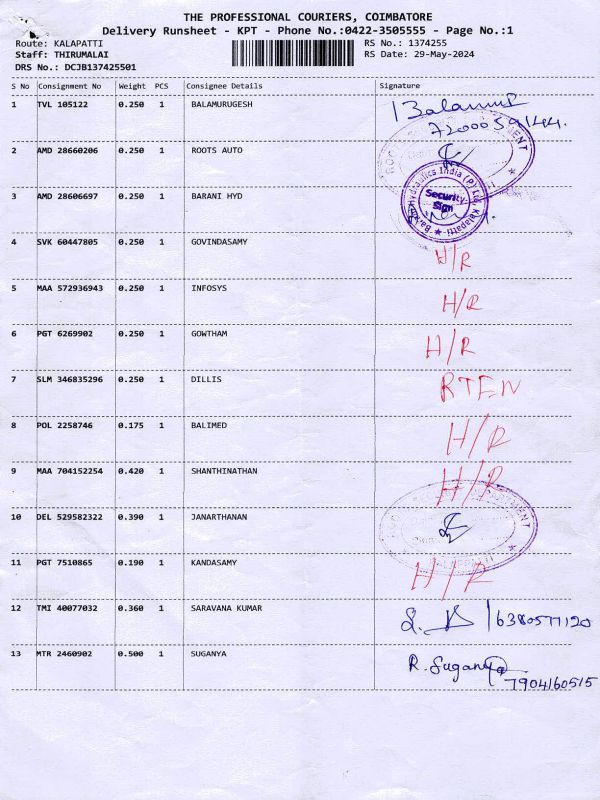 THE PROFESSIONAL COURIERS, COIMBATORE
Delivery Runsheet - KPT - Phone No.:0422-3505555 - Page No.:1
Route: KALAPATTI RS No.: 1374255
Staff: THIRUMALAI RS Date: 29-May-2024
DRS No.: DCJB137425501
S No Consignment No Weight PCS Consignee Details Signature
1 TVL 105122 0.250 1 BALAMURUGESH
2 AMD 28660206 0.250 1 ROOTS AUTO
3 AMD 28606697 0.250 1 BARANI HYD Security Sign
4 SVK 60447805 0.250 1 GOVINDASAMY H/R
5 MAA 572936943 0.250 1 INFOSYS H/R
6 PGT 6269902 0.250 1 GOWTHAM H/R
7 SLM 346835296 0.250 1 DILLIS
8 POL 2258746 0.175 1 BALIMED H/R
9 MAA 704152254 0.420 1 SHANTHINATHAN H/R
10 DEL 529582322 0.390 1 JANARTHANAN
11 PGT 7510865 0.190 1 KANDASAMY H/R
12 TMI 40077032 0.360 1 SARAVANA KUMAR 6380577120
13 MTR 2460902 0.500 1 SUGANYA R. Suganya
7904160515